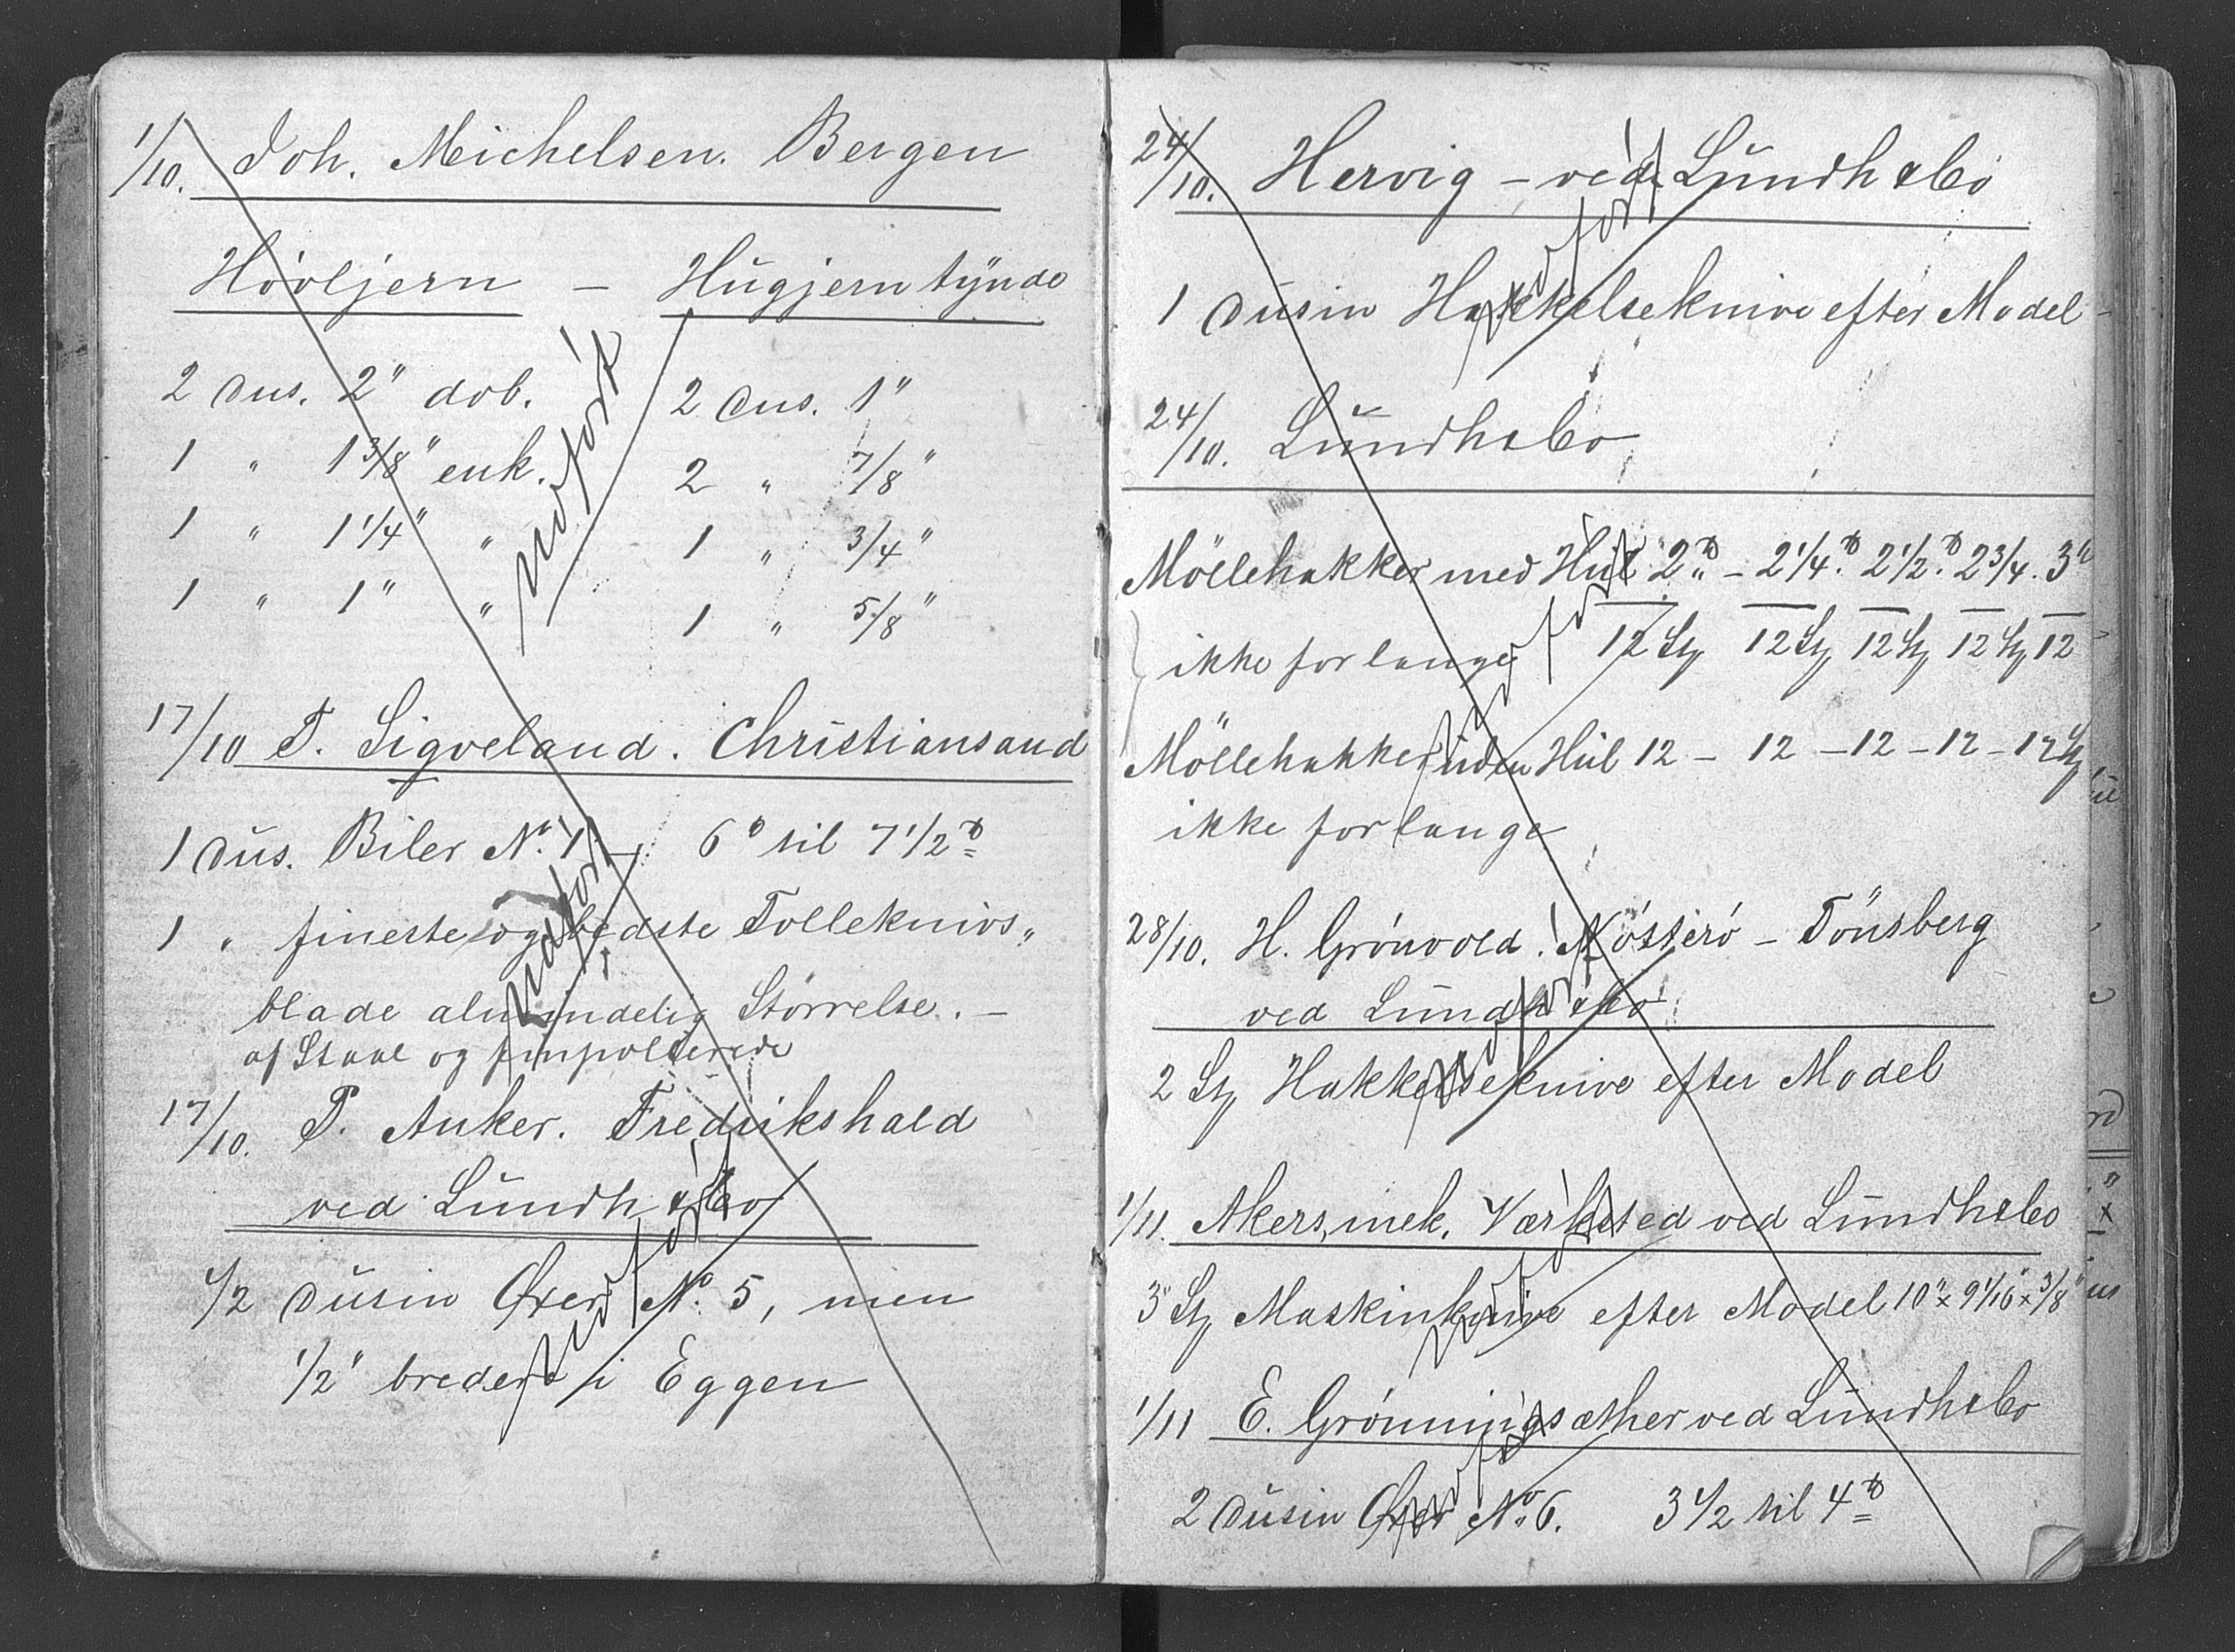 1/10. Joh. Meichelsen. Bergen
Hövljern — Hugjern tynde
2 Dus. 2" dob. 2 Dus. 1"
1 " 1 3/8" enk. 2 " 7/8"
1 " 1 1/4" " 1 " 3/4"
1 " 1" " 1 " 5/8"
udført
17/10 T. Sigveland. Christiansand
1 Dus. Biler No. 1 — 6 til 7 1/2
1 " fineste og bedste Tolleknivs"
blade almindelig Størrelse. —
af Staal og finpolerede
udført
17/10. P. Anker. Fredrikshald
ved Lundh & Co
1/2 Dusin Øxer No. 5, men
1/2" bredere i Eggen
udført
24/10. Hervig — ved Lundh & Co
1 Dusin Hakkelseknive efter Model
udført
24/10. Lundh & Co
Möllehakker med Hul 2 — 2 1/4. 2 1/2. 2 3/4. 3
ikke for lange 12 St 12 St 12 St 12 St 12
Möllehakker uden Hul 12 — 12 — 12 — 12 — 12 St
ikke for lange
udført
28/10. H. Grönvold. Nöfterö — Tönsberg
ved Lundh & Co
2 St Hakkelseknive efter Model
udført
1/11. Akers, mek. Værksted ved Lundh & Co
3 St Maskinknive efter Model 10" x 9 1/16" x 3/8"
udført
1/11 E. Grönningsæther ved Lundh & Co
2 Dusin Øxer No. 6. 3 1/2 til 4
udført